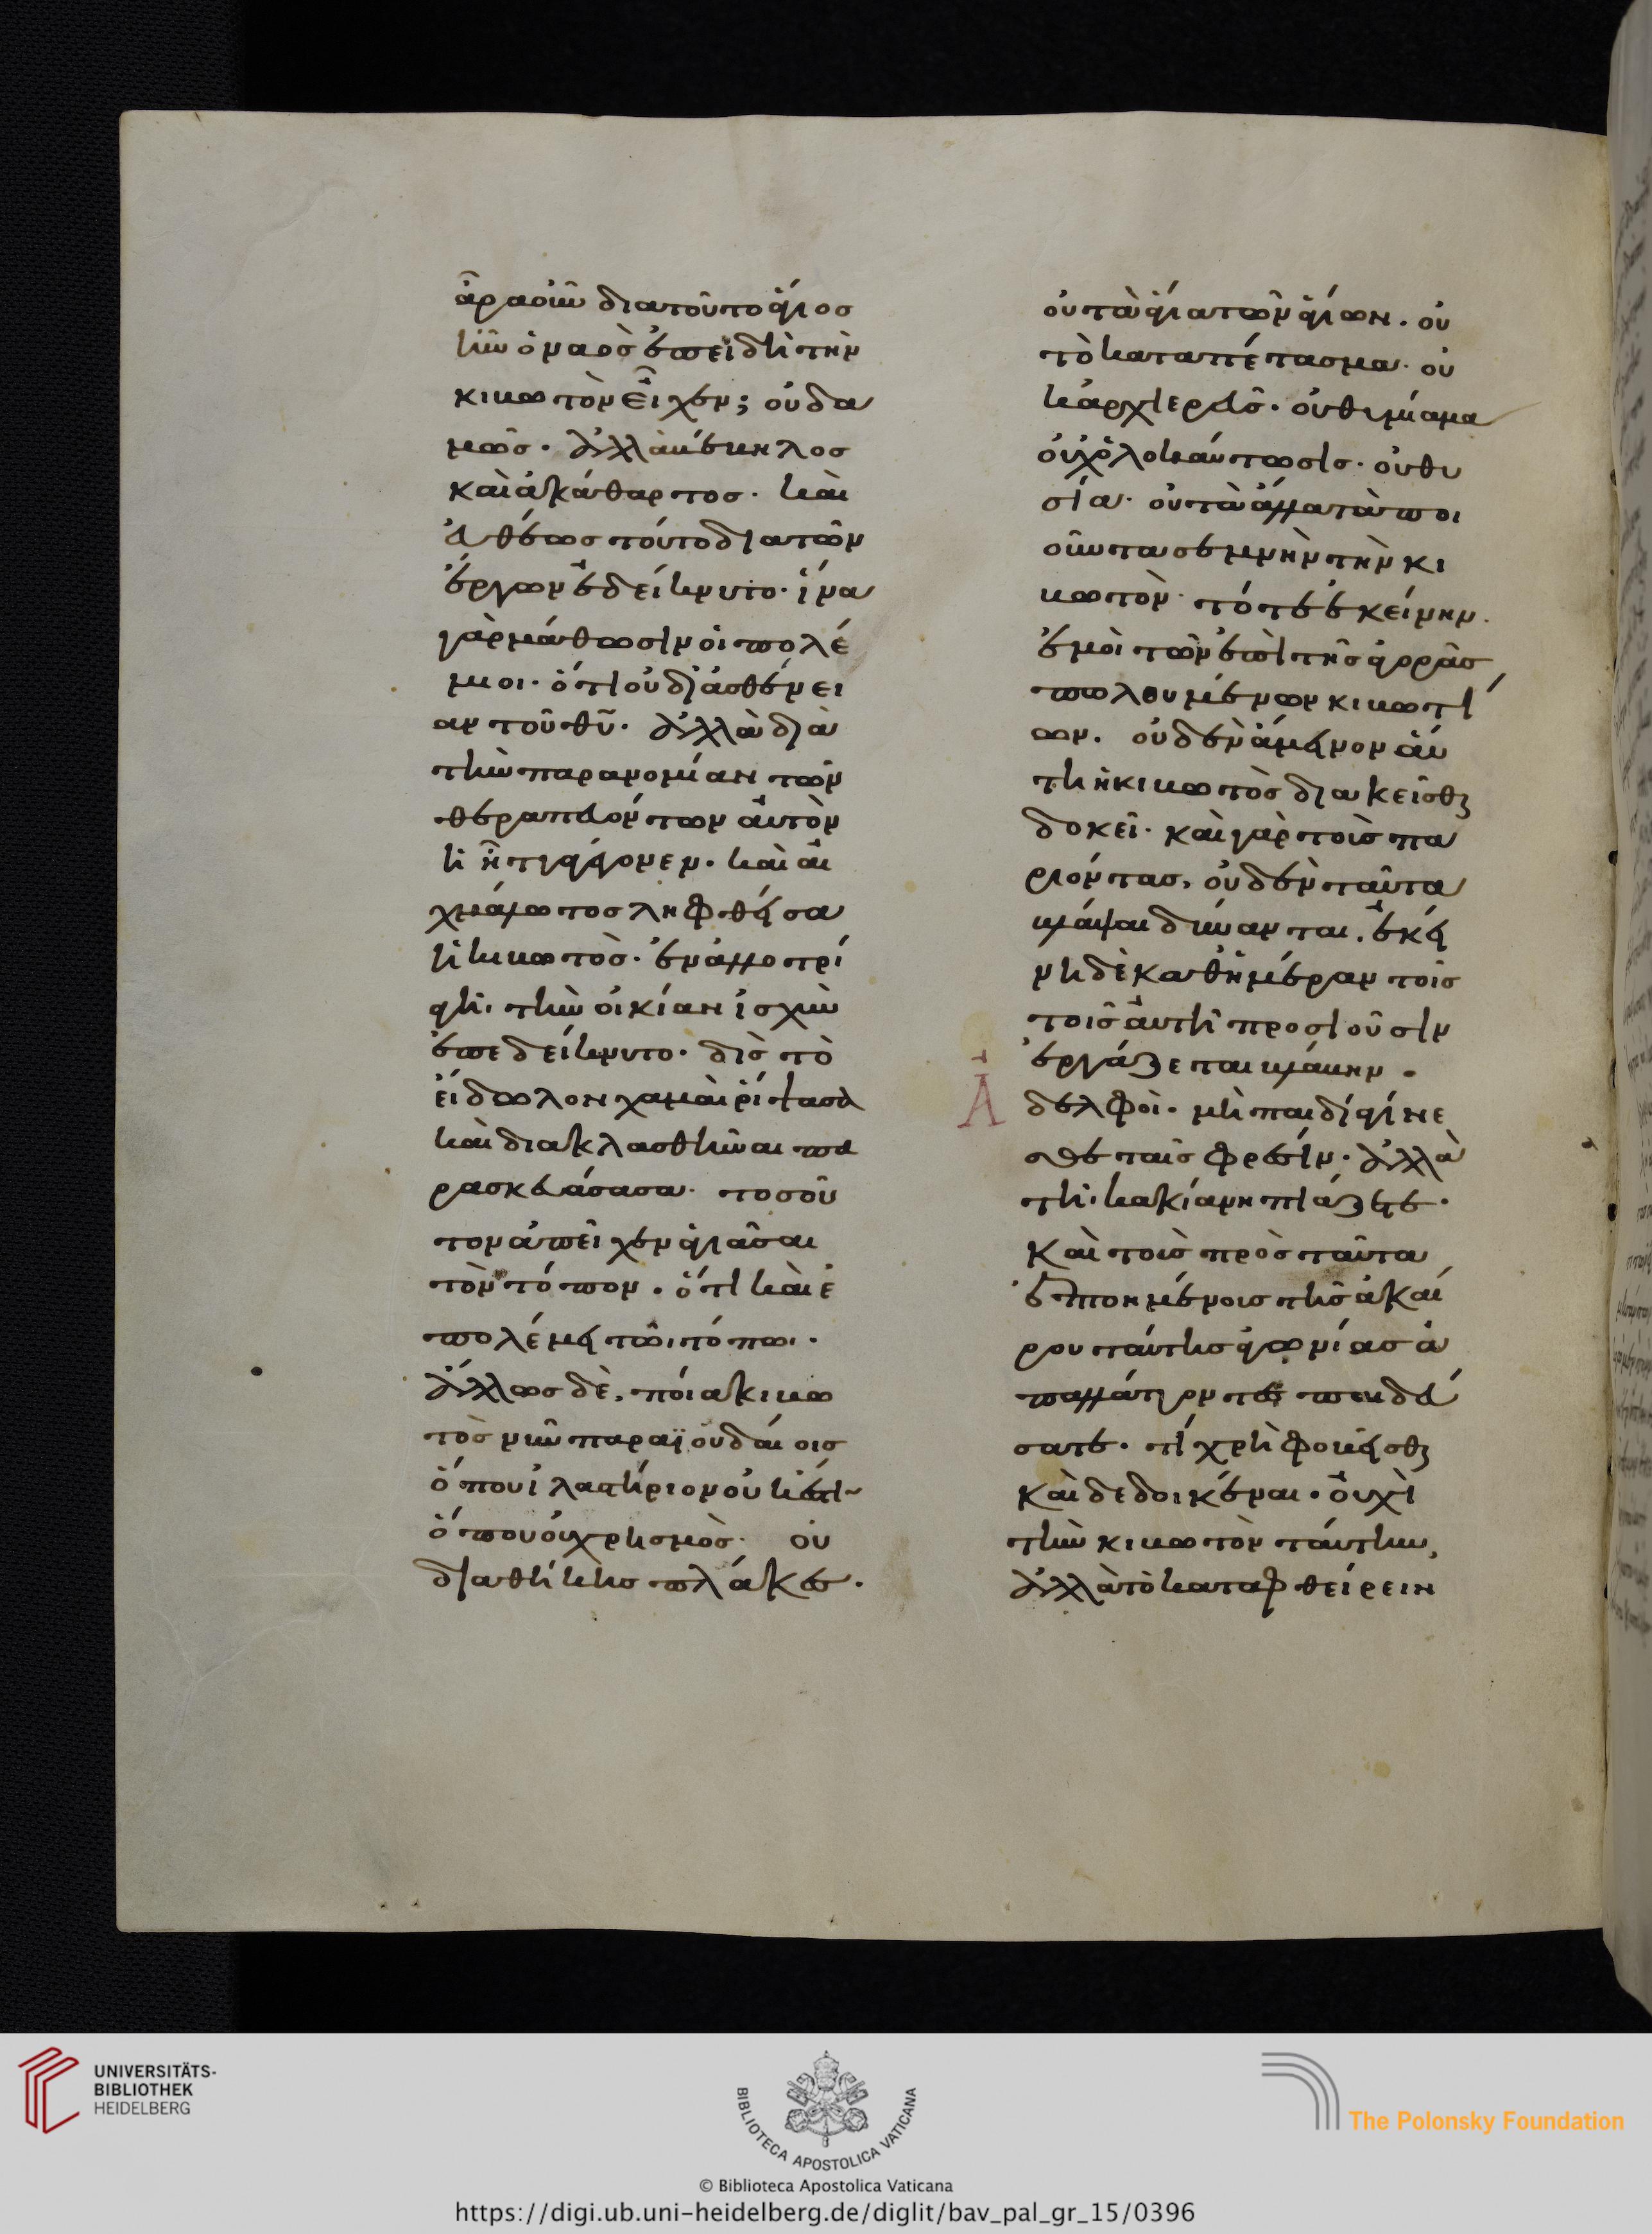 ἆρα οὖν διατοῦτο ἅγιος
ἦν ὁ ναὸς ἐπειδὴ τὴν
κιβωτὸν εἶχεν; οὐδα
μῶς· ἀλλὰ βέβηλος
καὶ ἀκάθαρτος· καὶ
εὐθέως τοῦτο διατῶν
ἔργων ἐδείκνυτο· ἵνα
γὰρ μάθωσιν οἱ πολέ
μιοι· ὅτι οὐ δι ἀσθένει
αν τοῦ θῦ· ἀλλὰ διὰ
τὴν παρανομίαν τῶν
θεραπευόντων αὐτὸν
ἡ ἧττα γέγονεν· καὶ αἰ
χμάλωτος ληφθεῖσα
ἡ κιβωτὸς· ἐν ἀλλοτρί
α γῆ· τὴν οἰκίαν ἰσχὺν
ἐπεδείκνυτο· δὶς τὸ
εἴδωλον χαμαὶ ῥίψασα
καὶ διακλασθῆναι πα
ρασκευάσασα· τοσοῦ
τον ἀπεῖχεν ἁγιᾶσαι
τὸν τόπον· ὅτι καὶ ἐ
πολέμει τῶι τόπωι·
ἄλλως δὲ, ποία κιβω
τὸς νῦν παραϊουδαίοις
ὅπου ἱλαστήριον οὐκ ἔστι
ὅπου οὐ χρησμὸς· οὐ
διαθήκης πλάκες·
οὐ τὰ ἅγια τῶν ἁγίων· οὐ
τὸ καταπέτασμα· οὐ
κ ἀρχιερεὺς· οὐ θυμίαμα
οὐχ ὁλοκαύτωσις· οὐ θυ
σία· οὐ τὰ ἄλλα τὰ ποι
οῦντα σεμνὴν τὴν κι
βωτὸν τότε ἐκείνην·
ἐμοὶ τῶν ἐπὶ τῆς ἀγορᾶς
πωλουμένων κιβωτί
ων· οὐδὲν ἄμεινον αὕ
τη ἡ κιβωτὸς διακεῖσθαι
δοκεῖ· καὶ γὰρ τοὺς πα
ριόντας, οὐδὲν ταῦτα
βλάψαι δύναται· ἐκεί
νη δὲ καθημέραν τοῖς
τοῖς αὐτῆ προσιοῦσιν
ἐργάζεται βλάβην·
Ἀδελφοὶ· μὴ παιδία γίνε
σθε ταῖς φρεσίν· ἀλλὰ
τῆ κακία νηπιάζετε·
καὶ τοὺς πρὸς ταῦτα
ἐπτοημένους τῆς ἀκαί
ρου ταύτης ἀγωνίας ἀ
παλλάττοντες παιδεύ
σατε· τί χρὴ φοβεῖσθαι
καὶ δεδοικέναι· οὐχὶ
τὴν κιβωτὸν ταύτην,
ἀλλὰ τὸ καταφθείρειν
UNIVERSITÄTS-
BIBLIOTHEK
HEIDELBERG
BIBLIOTECA APOSTOLICA VATICANA
The Polonsky Foundation
© Biblioteca Apostolica Vaticana
https://digi.ub.uni-heidelberg.de/diglit/bav_pal_gr_15/0396